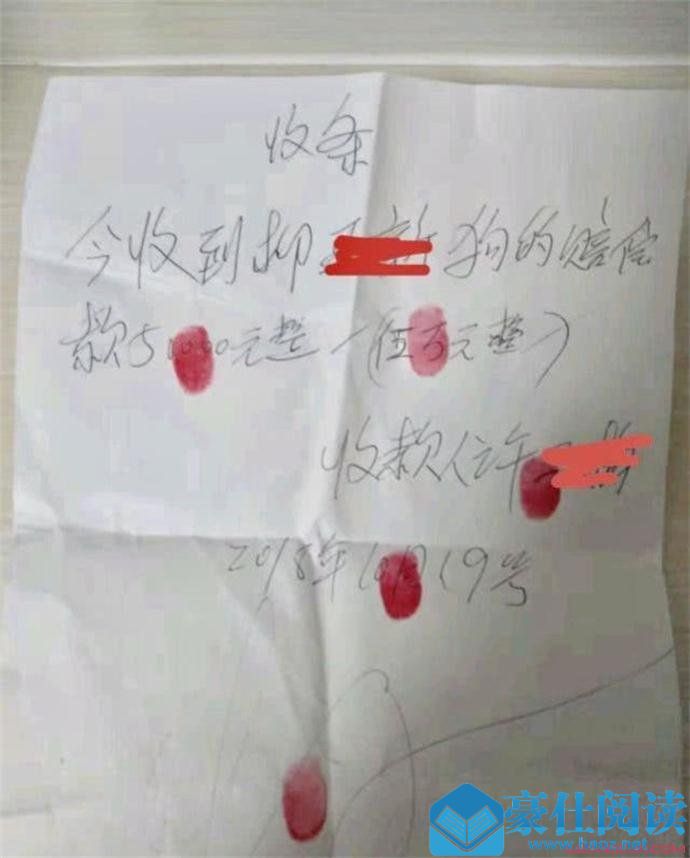 收条
今收到柳 狗的赔偿
款50000元整(伍万元整)
收款人许
2018年10月19号
豪仕阅读
www.haoz.net